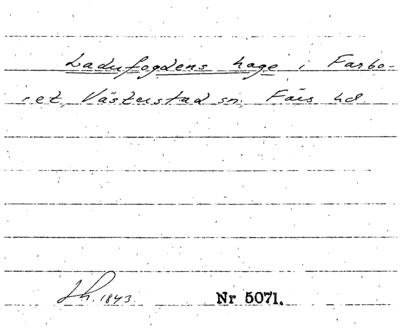 Ladufogdens hage i Farbo-
ret, Västerstad sn, Färs hd
Lh. 1843. Nr 5071.